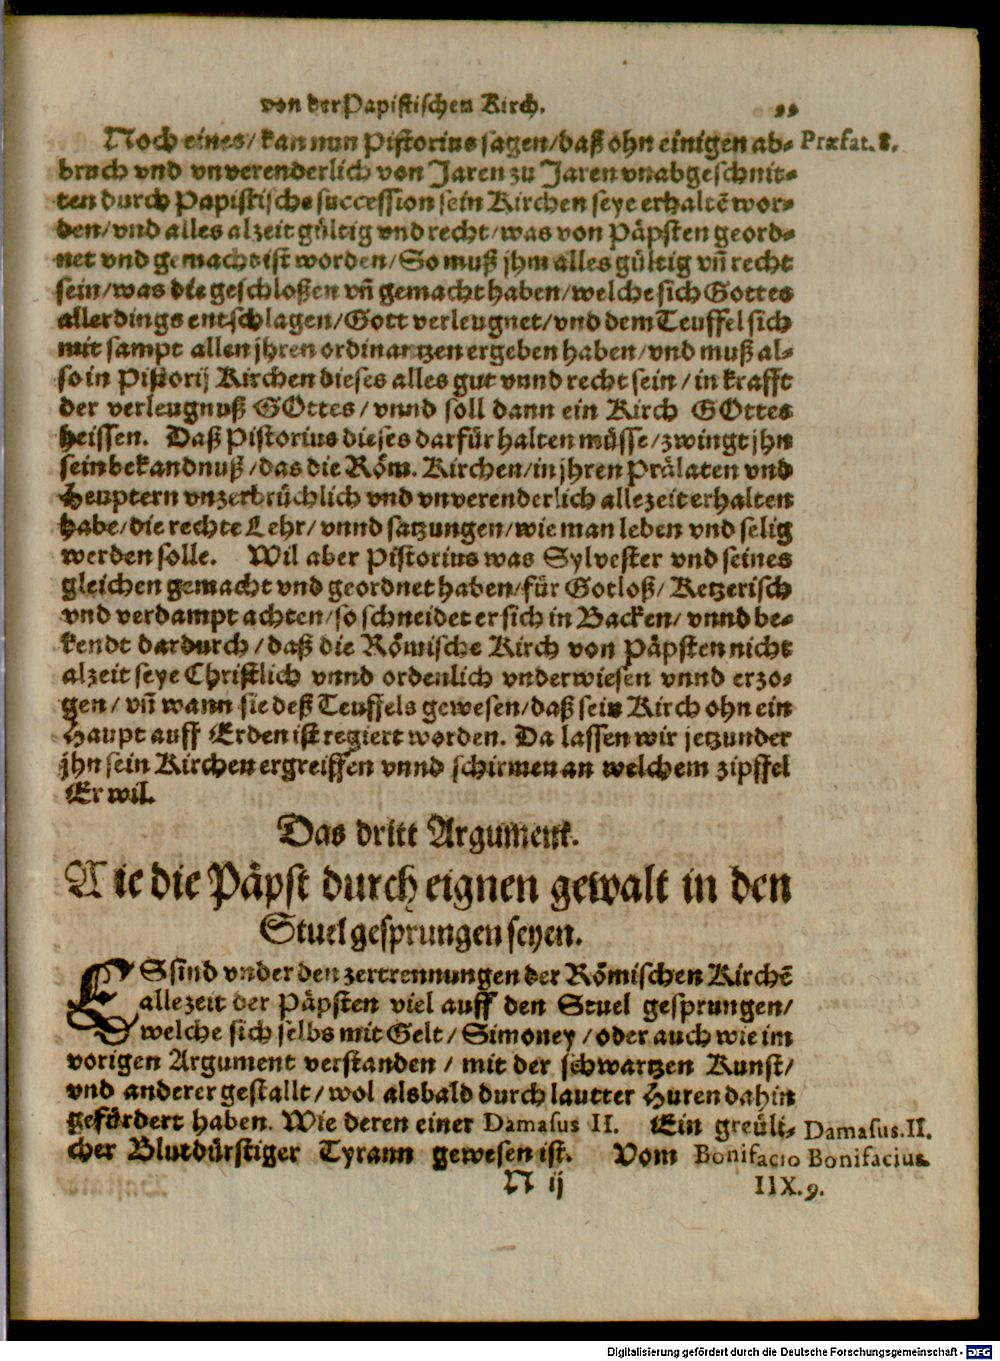 von der Papistischen Kirch. 99
Noch eines/ kan nun Pistorius sagen/ daß ohn einigen ab- Præfat. 8.
bruch vnd vnverenderlich von Jaren zu Jaren vnabgeschnit-
ten durch Papistische succession sein Kirchen seye erhaltē wor-
den/ vnd alles alzeit gültig vnd recht/ was von Päpsten geord-
net vnd gemacht ist worden/ So muß jhm alles gültig vñ recht
sein/ was die geschloßen vñ gemacht haben/ welche sich Gottes
allerdings entschlagen/ Gott verleugnet/ vnd dem Teuffel sich
mit sampt allen jhren ordinantzen ergeben haben/ vnd muß al-
so in Pistorij Kirchen dieses alles gut vnnd recht sein/ in krafft
der verleugnuß GOttes/ vnnd soll dann ein Kirch GOttes
heissen. Daß Pistorius dieses darfür halten müsse/ zwingt jhn
sein bekandnuß/ das die Röm. Kirchen/ in jhren Prälaten vnd
Heuptern vnzerbrüchlich vnd vnverenderlich allezeit erhalten
habe/ die rechte Lehr/ vnnd satzungen/ wie man leben vnd selig
werden solle. Wil aber Pistorius was Sylvester vnd seines
gleichen gemacht vnd geordnet haben/ für Gotloß/ Ketzerisch
vnd verdampt achten/ so schneidet er sich in Backen/ vnnd be-
kendt dardurch/ daß die Römische Kirch von Päpsten nicht
alzeit seye Christlich vnnd ordenlich vnderwiesen vnnd erzo-
gen/ vñ wann sie deß Teuffels gewesen/ daß sein Kirch ohn ein
Haupt auff Erden ist regiert worden. Da lassen wir jetzunder
jhn sein Kirchen ergreiffen vnnd schirmen an welchem zipffel
Er wil.
Das dritt Argument.
Wie die Päpst durch eignen gewalt in den
Stuel gesprungen seyen.
ES sind vnder den zertrennungen der Römischen Kirchē
allezeit der Päpsten viel auff den Stuel gesprungen/
welche sich selbs mit Gelt/ Simoney/ oder auch wie im
vorigen Argument verstanden/ mit der schwartzen Kunst/
vnd anderer gestallt/ wol alsbald durch lautter Huren dahin
gefördert haben. Wie deren einer Damasus II. Ein greüli- Damasus. II.
cher Blutdürstiger Tyrann gewesen ist. Vom Bonifacio Bonifacius
N ij IIX. 9.
Digitalisierung gefördert durch die Deutsche Forschungsgemeinschaft - DFG